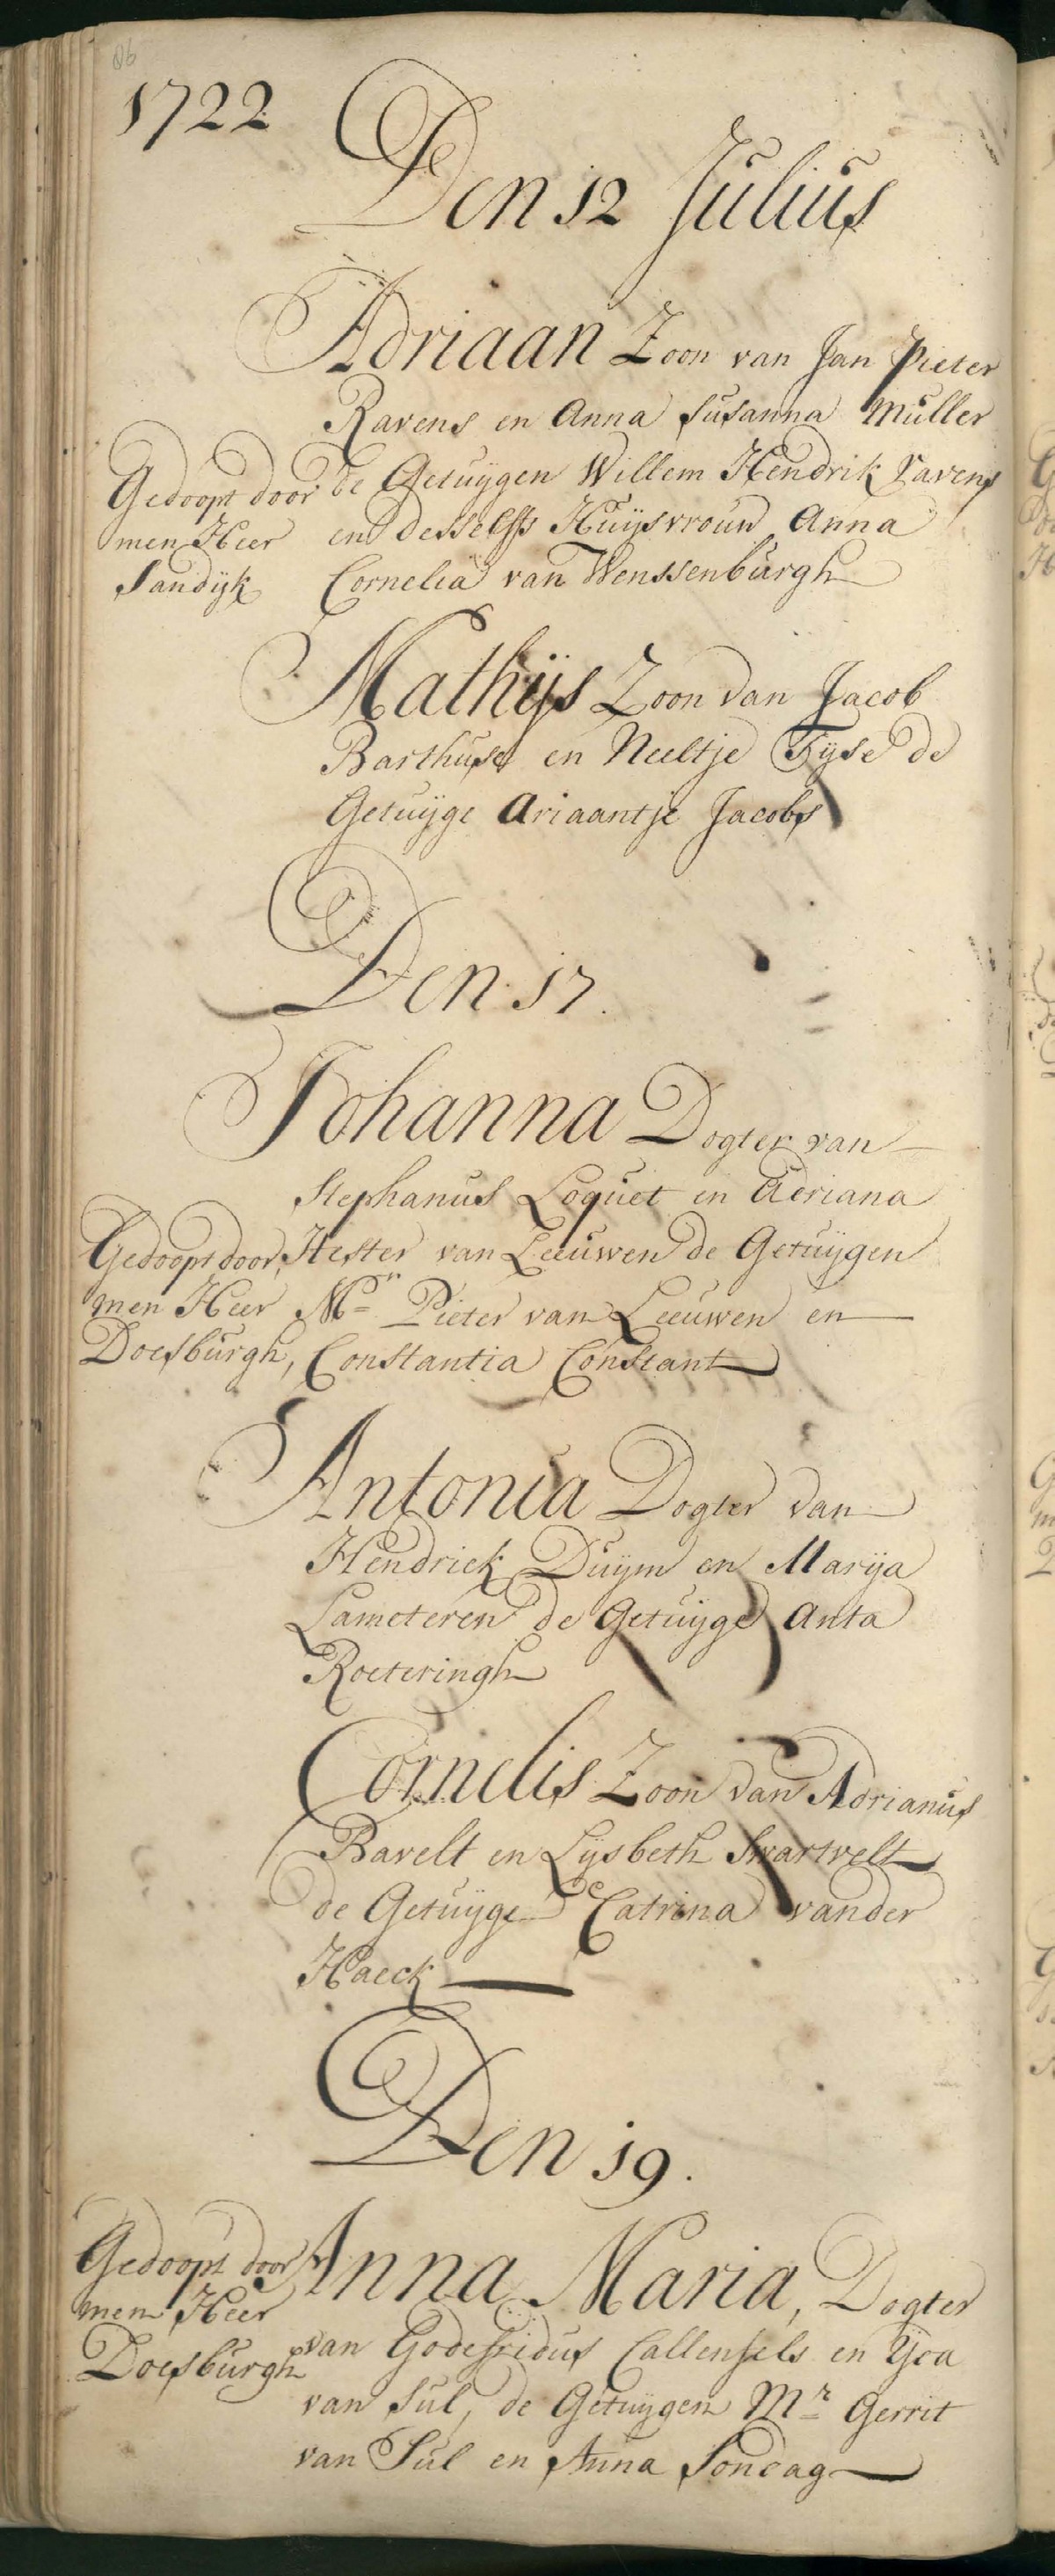 1722
Den 12 Julius
Adriaan Zoon van Jan Pieter
Ravens en Anna Susanna Muller
de Getuygen Willem Hendrik Ravens
en desselfs Huysvrouw Anna
Cornelia van Wenssenburgh
Gedoopt door
men Heer
Sandijk
Mathijs Zoon van Jacob
Barthuse en Neeltje Tyse de
Getuyge Ariaantje Jacobs
Den 17.
Johanna Dogter van
Stephanus Loquet en Adriana
Hester van Leeuwen de Getuygen
Mr Pieter van Leeuwen en
Constantia Constant
Gedoopt door
men Heer
Doesburgh,
Antonia Dogter van
Hendrick Duym en Marya
Lameteren de Getuyge Anta
Roeteringh
Cornelis Zoon van Adrianus
Bavelt en Lysbeth Swartvelt
de Getuyge Catrina vander
Haeck
Den 19.
Anna Maria, Dogter
van Godefridus Callenfels en Yda
van Sul, de Getuygen Mr Gerrit
van Sul en Anna Sondag
Gedoopt door
men Heer
Doesburgh